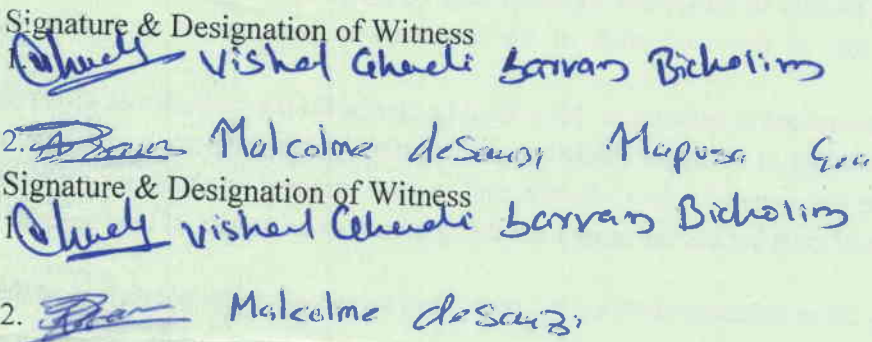 Signature & Designation of Witness
1. Vishal Ghadi Sarvan Bicholim
2. Malcolme deSouza Mapusa Goa
Signature & Designation of Witness
1. Vishal Ghadi Sarvan Bicholim
2. Malcolme deSouza